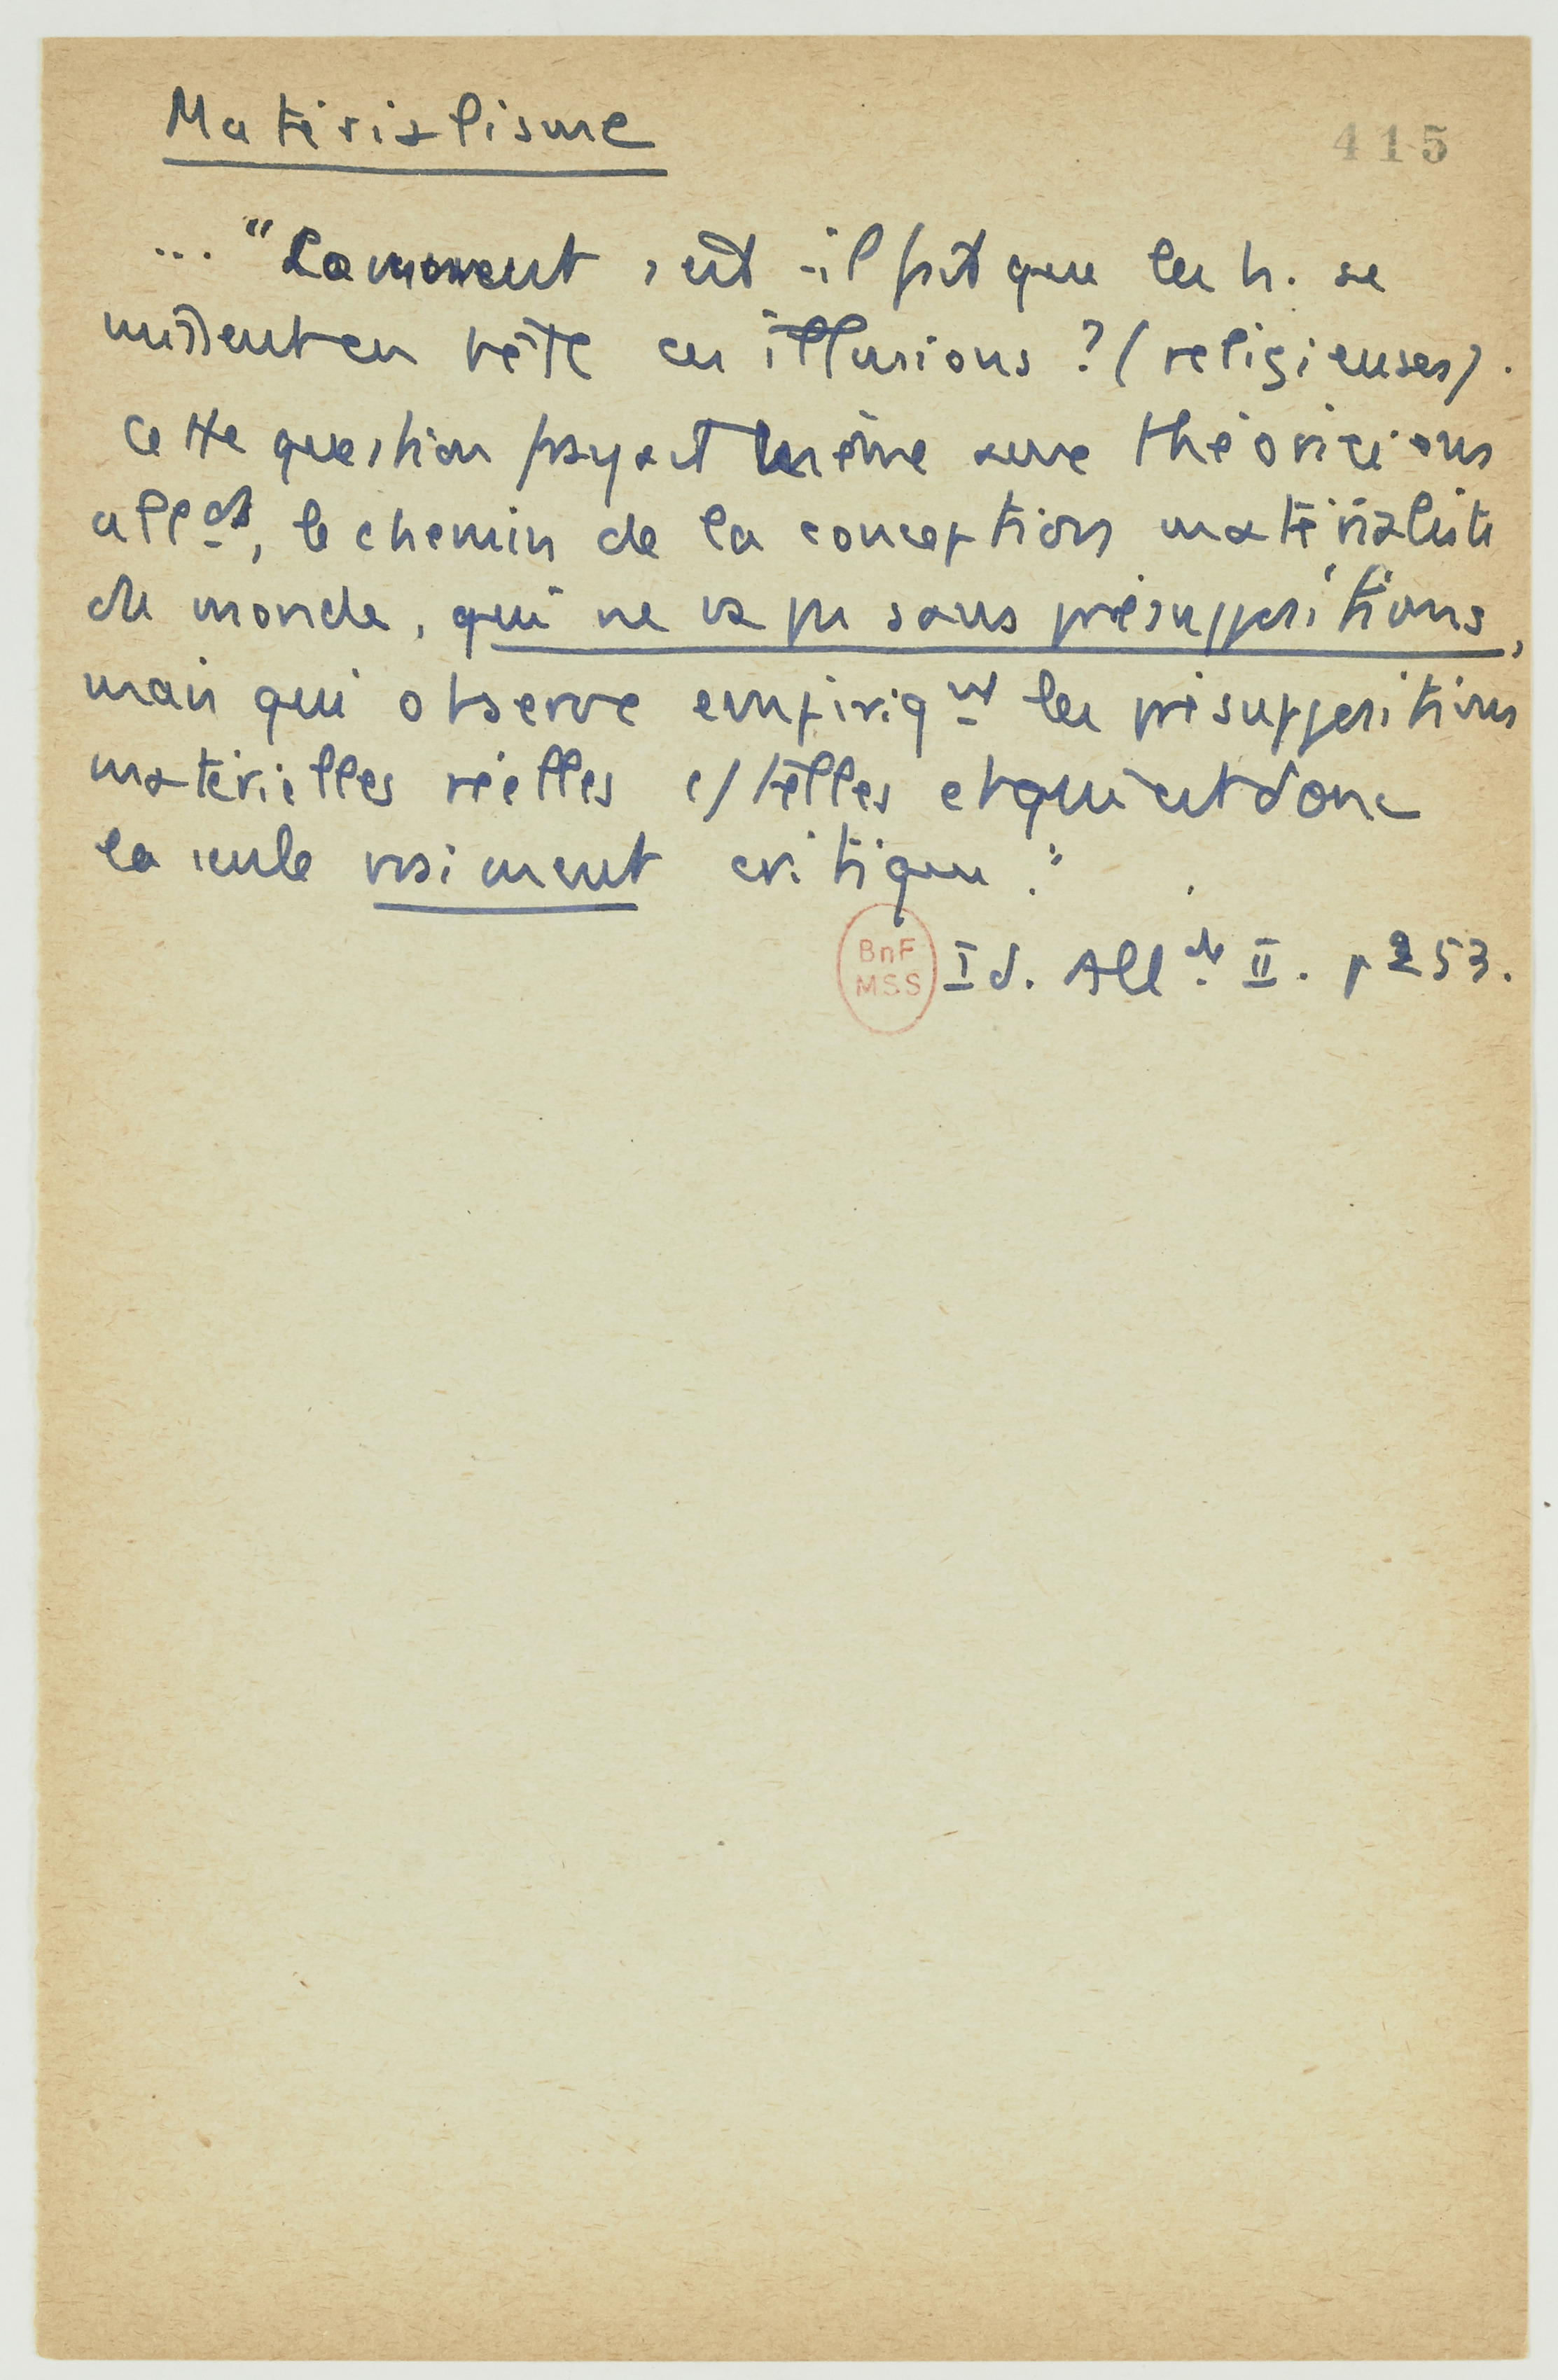 Matérialisme
415
... "Comment s'est-il fait que les h. se
missent en tête ces illusions ? (religieuses).
Cette question frayait même aux théoriciens
alle^ds, le chemin de la conception matérialiste
du monde, qui ne va pas sans présuppositions,
mais qui observe empiriq^nt les présuppositions
matérielles réelles c/ telles et qui est donc
la seule vraiment critique."
BnF
MSS
Id. All^de II. p 253.